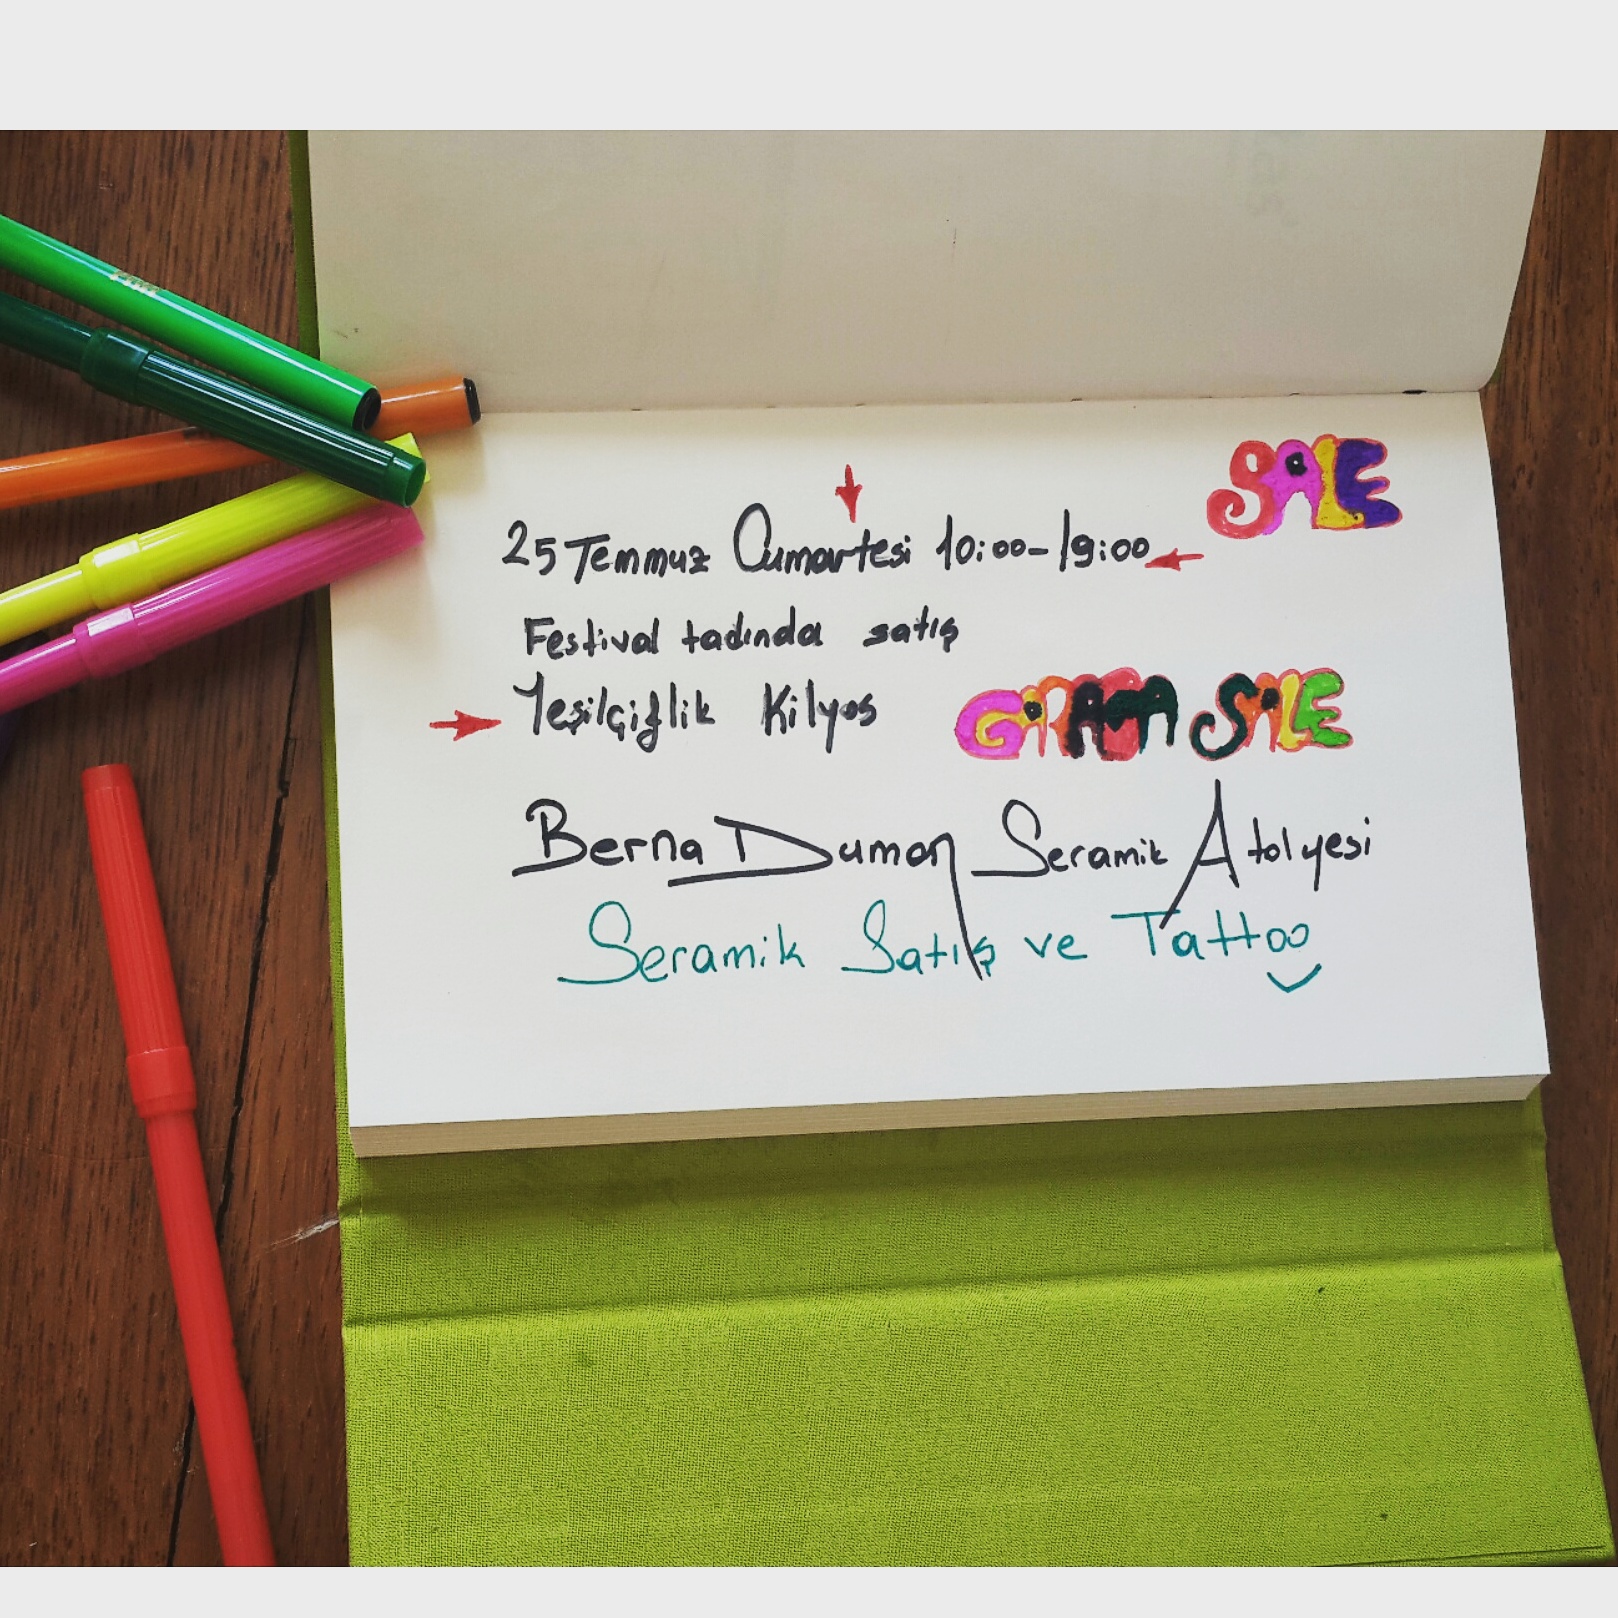 SALE
25 Temmuz Cumartesi 10:00-19:00
Festival tadında satış
Yeşilçiflik Kilyos
SALE
Berna Duman Seramik Atolyesi
Seramik Satış ve Tattoo